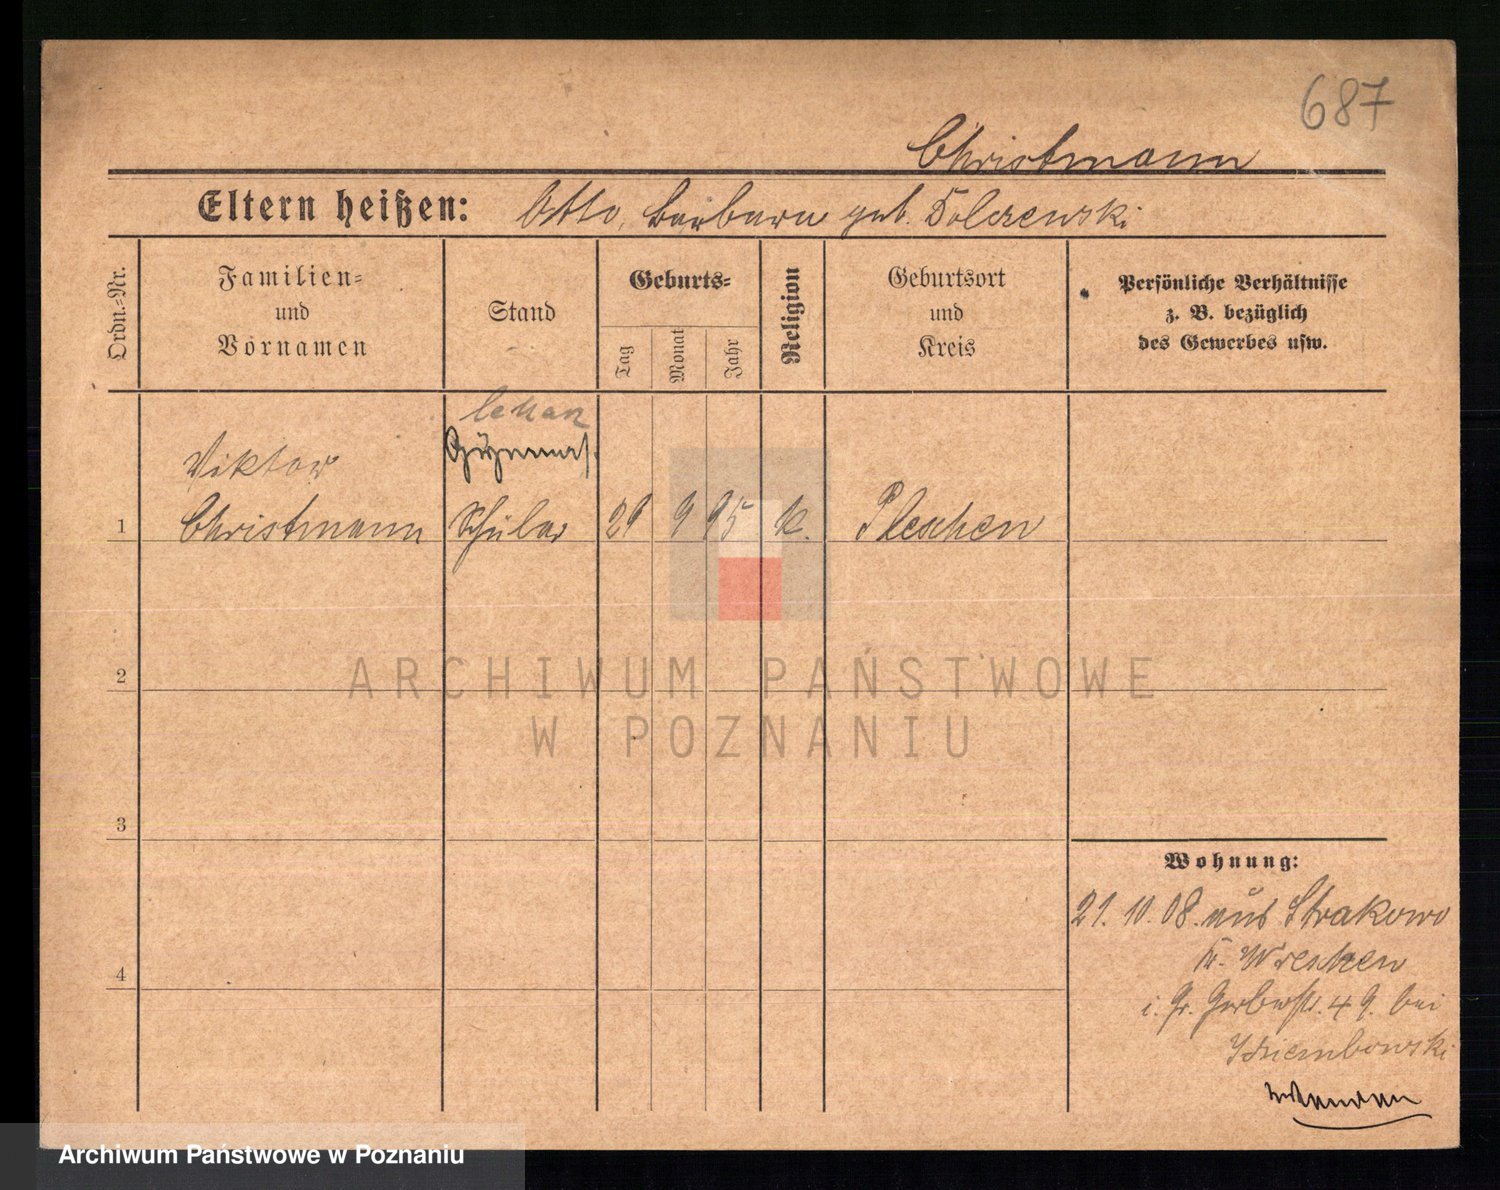 687
Christmann
Eltern heißen: Otto, Barbara geb. Dolczewski
Ordn.-Nr.
Familien-
und
Vornamen
Stand
Geburts-
Tag
Monat
Jahr
Religion
Geburtsort
und
Kreis
Persönliche Verhältnisse
z. B. bezüglich
des Gewerbes usw.
Viktor
Gymnas.
1 Christmann Schüler 29 9 95 k. Pleschen
2
3
4
ARCHIWUM PAŃSTWOWE
W POZNANIU
Wohnung:
21. 10. 08. aus Strakowo
Kr. Wreschen
i. Gr. Gerberstr. 49. bei
Archiwum Państwowe w Poznaniu